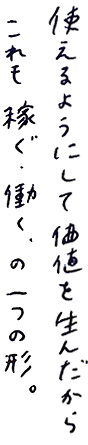 使えるようにして価値を生んだから
これも稼ぐ、働く、の一つの形。